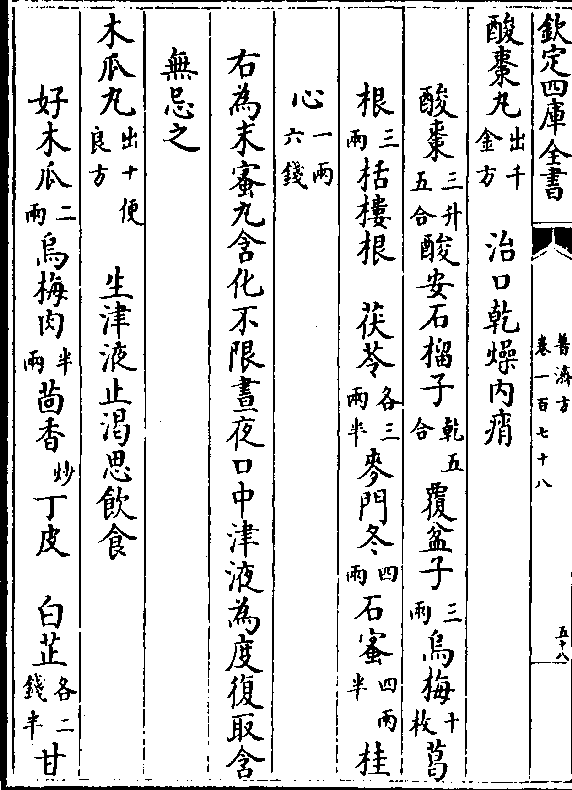 欽定四庫全書
普濟方
卷一百七十八
五十八
酸棗丸出千金方 治口乾燥內痟
酸棗三升五合酸安石榴子乾五合覆盆子三兩烏梅十枚葛
根三兩栝樓根 茯苓各三兩半麥門冬四兩石蜜四兩半桂
心一兩六錢
右為末蜜丸含化不限晝夜口中津液為度復取含
無忌之
木瓜丸出十便良方 生津液止渴思飲食
好木瓜二兩烏梅肉半兩茴香炒丁皮 白芷各二錢半甘